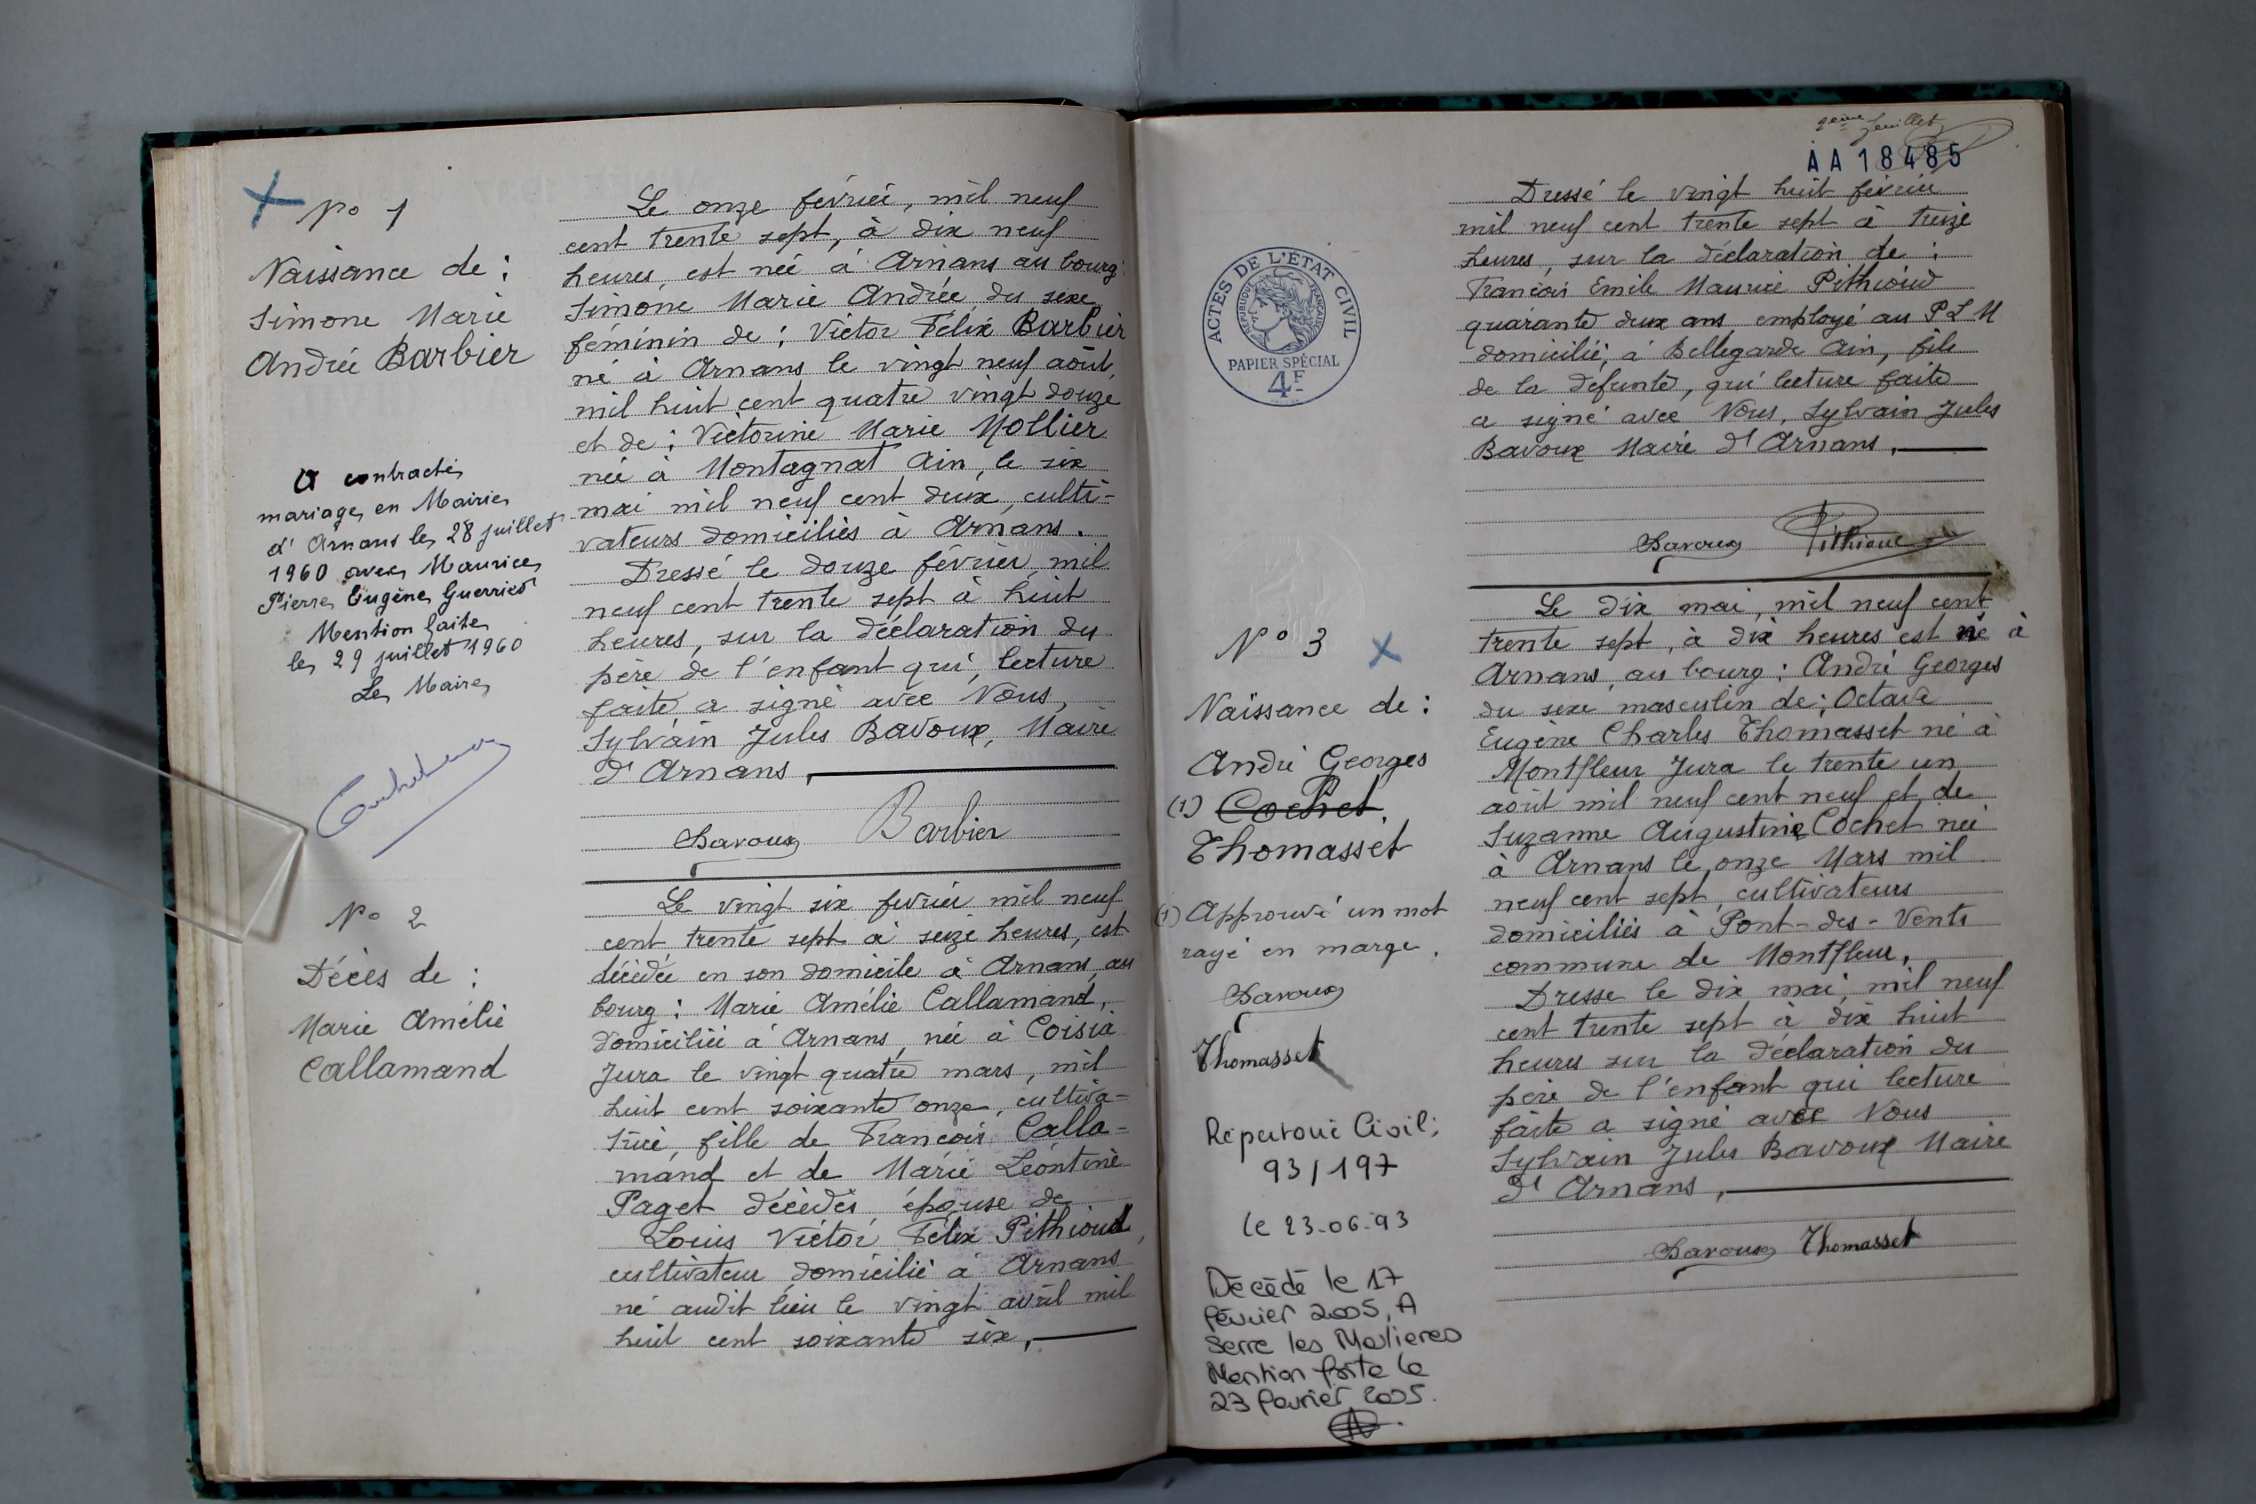 N° 1
Naissance de :
Simone Marie
Andrée Barbier
A contracté
mariage en Mairie
d'Arnans le 28 juillet
1960 avec Maurice
Pierre Eugène Guerried
Mention faite
le 29 juillet 1960
Le Maire
Le onze février, mil neuf
cent trente sept, à dix neuf
heures, est née à Arnans au bourg
Simone Marie Andrée du sexe
féminin de : Victor Félix Barbier
né à Arnans le vingt neuf août
mil huit cent quatre vingt douze
et de : Victorine Marie Mollier
née à Montagnat Ain, le six
mai mil neuf cent deux, culti-
vateurs domiciliés à Arnans.
Dressé le douze février, mil
neuf cent trente sept à huit
heures, sur la déclaration du
père de l'enfant qui, lecture
faite a signé avec Nous,
Sylvain Jules Bavoux, Maire
d'Arnans,
Bavoux Barbier
N° 2
Décès de :
Marie Amélie
Callamand
Le vingt six février mil neuf
cent trente sept à seize heures, est
décédée en son domicile à Arnans, au
bourg : Marie Amélie Callamand,
domiciliée à Arnans, née à Coisia
Jura le vingt quatre mars, mil
huit cent soixante onze, cultiva-
trice, fille de François Calla-
mand et de Marie Léontine
Paget décédés, épouse de
Louis Victor Félix Pithioud,
cultivateur domicilié à Arnans
né audit lieu le vingt avril mil
huit cent soixante six,
2ème feuillet
AA 18485
ACTES DE L'ÉTAT CIVIL
RÉPUBLIQUE FRANÇAISE
PAPIER SPÉCIAL
4F
Dressé le vingt huit février
mil neuf cent trente sept à treize
heures, sur la déclaration de :
François Emile Maurice Pithioud
quarante deux ans employé au P L M
domicilié, à Bellegarde Ain, fils
de la défunte, qui lecture faite
a signé avec Nous, Sylvain Jules
Bavoux Maire d'Arnans,
Bavoux Pithioud
N° 3
Naissance de :
André Georges
(1) Cochet.
Thomasset
(1) Approuvé un mot
rayé en marge.
Bavoux
Thomasset
Répertoire Civil;
93/197
le 23-06-93
Décédé le 17
février 2005, A
Serre les Moulières
Mention faite le
23 février 2005.
Le dix mai, mil neuf cent
trente sept, à dix heures est né à
Arnans, au bourg : André Georges
du sexe masculin de : Octave
Eugène Charles Thomasset né à
Montfleur Jura le trente un
août mil neuf cent neuf et de
Suzanne Augustine Cochet née
à Arnans le onze Mars mil
neuf cent sept, cultivateurs
domiciliés à Pont-des-Vents
commune de Montfleur,
Dressé le dix mai, mil neuf
cent trente sept à dix huit
heures sur la déclaration du
père de l'enfant qui lecture
faite a signé avec Nous
Sylvain Jules Bavoux Maire
d'Arnans,
Bavoux Thomasset